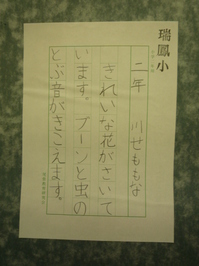 瑞鳳小
二年 川せももな
きれいな花がさいて
います。ブーンと虫の
とぶ音がきこえます。